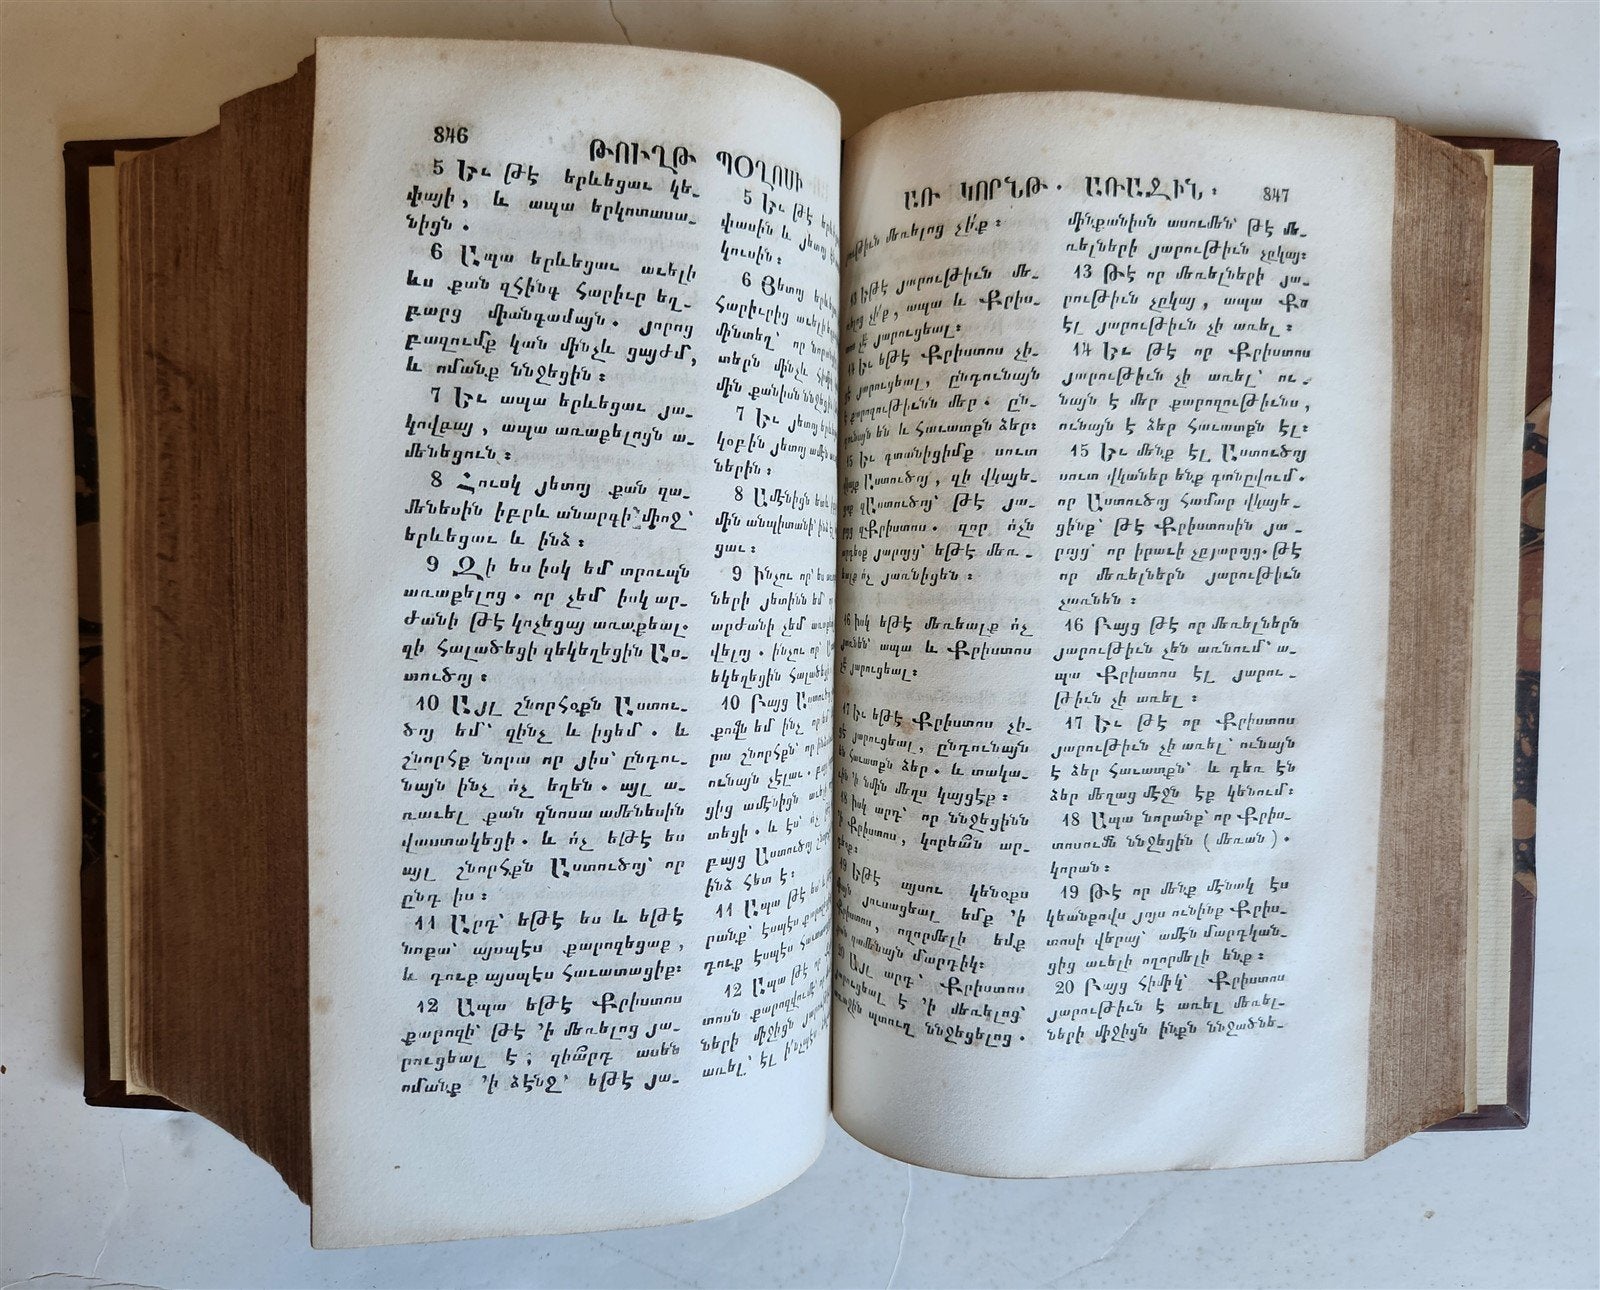 846
ԹՈՒՂԹ ՊՕՂՈՍԻ
5 Եւ թէ երևեցաւ կե-
փայի, և ապա երկոտասա-
նիցն.
6 Ապա երևեցաւ աւելի
ևս քան զհինգ հարիւր եղ-
բարց միանգամայն. յորոց
բազումք կան մինչև ցայժմ,
և ոմանք ննջեցին։
7 Եւ ապա երևեցաւ յա-
կովբայ, ապա առաքելոցն ա-
մենեցուն։
8 Հուսկ յետոյ քան զա-
մենեսին իբրև անարգի՝ միոջ՝
երևեցաւ և ինձ։
9 Զի ես իսկ եմ տրուպն
առաքելոց. որ չեմ իսկ ար-
ժանի թէ կոչեցայ առաքեալ.
զի հալածեցի զեկեղեցին Աս-
տուծոյ։
10 Այլ շնորհօքն Աստու-
ծոյ եմ՝ զինչ և իցեմ. և
շնորհք նորա որ յիս՝ ընդու-
նայն ինչ ոչ եղեն. այլ ա-
ռաւել քան զնոսա ամենեսին
վաստակեցի. և ոչ եթէ ես
այլ շնորհքն Աստուծոյ՝ որ
ընդ իս։
11 Արդ՝ եթէ ես և եթէ
նոքա՝ այսպէս քարոզեցաք,
և դուք այսպէս հաւատացիք։
12 Ապա եթէ Քրիստոս
քարոզի՝ թէ ՚ի մեռելոց յա-
րուցեալ է, զիա՞րդ ասեն
ոմանք ՚ի ձէնջ՝ եթէ յա-
5 Եւ թէ
փասին և յետոյ
կուսին։
6 Յետոյ
հարիւրից աւելի
մինտեղ՝ որ
տերն մինչև
մին քանիսն ննջեցին
7 Եւ յետոյ
կօբին յետոյ ամէն
ներին։
8 Ամէնիցն ետև
մին անպիտանի՝ ինձ
ցաւ։
9 Ինչու որ՝ ես
ների յետինն եմ
արժանի չեմ
վելոյ. ինչու որ՝
եկեղեցին հալածեցի
10 Բայց
քովն եմ ինչ որ եմ
րա շնորհքն՝ որ
ունայն չէլաւ.
ցից ամէնիցն
տեցի. և ես՝ ոչ
բայց Աստուծոյ
ինձ հետ է։
11 Ապա թէ ես և
րանք՝ էսպէս
դուք էսպէս
12 Ապա թէ
տոսն քարոզվումէ՝
ների միջիցն
առել՝ էլ
ԱՌ ԿՈՐՆԹ. ԱՌԱՋԻՆ։
847
րութիւն մեռելոց չի՛ք։
13 Եթէ յարութիւն մե-
ռելոց չի՛ք, ապա և Քրիս-
տոս չէ յարուցեալ։
14 Եւ եթէ Քրիստոս չի-
ցէ յարուցեալ, ընդունայն
է քարոզութիւնն մեր. ըն-
դունայն են և հաւատքն ձեր։
15 Եւ գտանիցիմք սուտ
վկայք Աստուծոյ, զի վկայե-
ցաք զԱստուծոյ՝ թէ յա-
րոյց զՔրիստոս. զոր ո՛չն
արդեօք յարոյց՝ եթէ մեռ-
եալք ոչ յառնիցեն։
16 Իսկ եթէ մեռեալք ո՛չ
յառնեն՝ ապա և Քրիստոս
չէ յարուցեալ։
17 Եւ եթէ Քրիստոս չի-
ցէ յարուցեալ, ընդունայն
են հաւատքն ձեր. և տակա-
ւին ՚ի նմին մեղս կայցէք։
18 Իսկ արդ՝ որ ննջեցինն
՚ի Քրիստոս, կորեա՞ն ար-
դեօք։
19 Եթէ այսու կենօքս
միայն յուսացեալ եմք ՚ի
Քրիստոս, ողորմելի եմք
քան զամենայն մարդիկ։
20 Այլ արդ՝ Քրիստոս
յարուցեալ է ՚ի մեռելոց՝
առաջին պտուղ ննջեցելոց.
մինքանիսն ասումեն՝ թէ մե-
ռելների յարութիւն չըկայ։
13 Թէ որ մեռելների յա-
րութիւն չըկայ, ապա Քս
էլ յարութիւն չի առել։
14 Եւ թէ որ Քրիստոս
յարութիւն չի առել՝ ու-
նայն է մեր քարոզութիւնս,
ունայն է ձեր հաւատքն էլ։
15 Եւ մենք էլ Աստուծոյ
սուտ վկաներ ենք գտնըվում.
որ Աստուծոյ համար վկայե-
ցինք՝ թէ Քրիստոսին յա-
րոյց՝ որ իրաւի չըյարոյց. թէ
որ մեռելներն յարութիւն
չառնեն։
16 Բայց թէ որ մեռելներն
յարութիւն չեն առնում՝ ա-
պա Քրիստոս էլ յարու-
թիւն չի առել։
17 Եւ թէ որ Քրիստոս
յարութիւն չի առել՝ ունայն
է ձեր հաւատքն՝ և դեռ էն
ձեր մեղաց մէջն էք կենում։
18 Ապա նորանք՝ որ Քրիս-
տոսումն ննջեցին (մեռան).
կորան։
19 Թէ որ մենք մէնակ էս
կեանքովս յոյս ունինք Քրիս-
տոսի վերայ՝ ամէն մարդկան-
ցից աւելի ողորմելի ենք։
20 Բայց հիմիկ՝ Քրիստոս
յարութիւն է առել մեռել-
ների միջիցն ինքն ննջածնե-